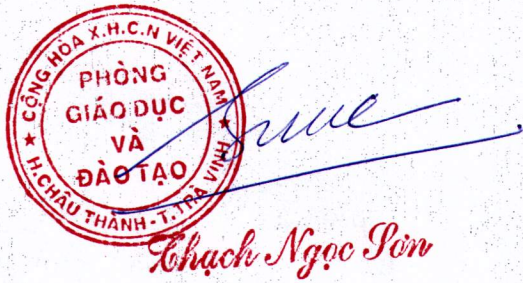 CỘNG HÒA X.H.C.N VIỆT NAM
PHÒNG
GIÁO DỤC
VÀ
ĐÀO TẠO
★ H.CHÂU THÀNH - T.TRÀ VINH ★
Thạch Ngọc Sơn